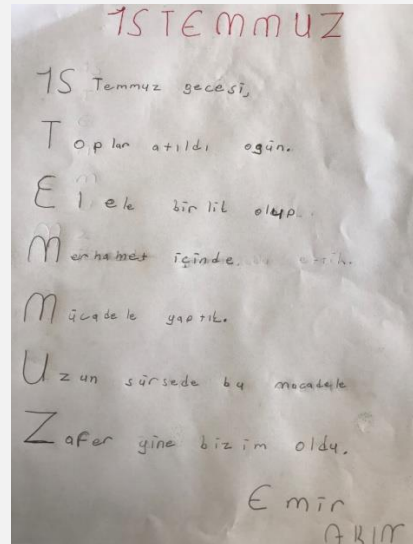 15 TEMMUZ
15 Temmuz gecesi,
Toplar atıldı ogün.
El ele birlik olup..
Merhamet içinde
Mücadele yaptık.
Uzun sürsede bu mocadele
Zafer yine bizim oldu.
Emir
AKIN